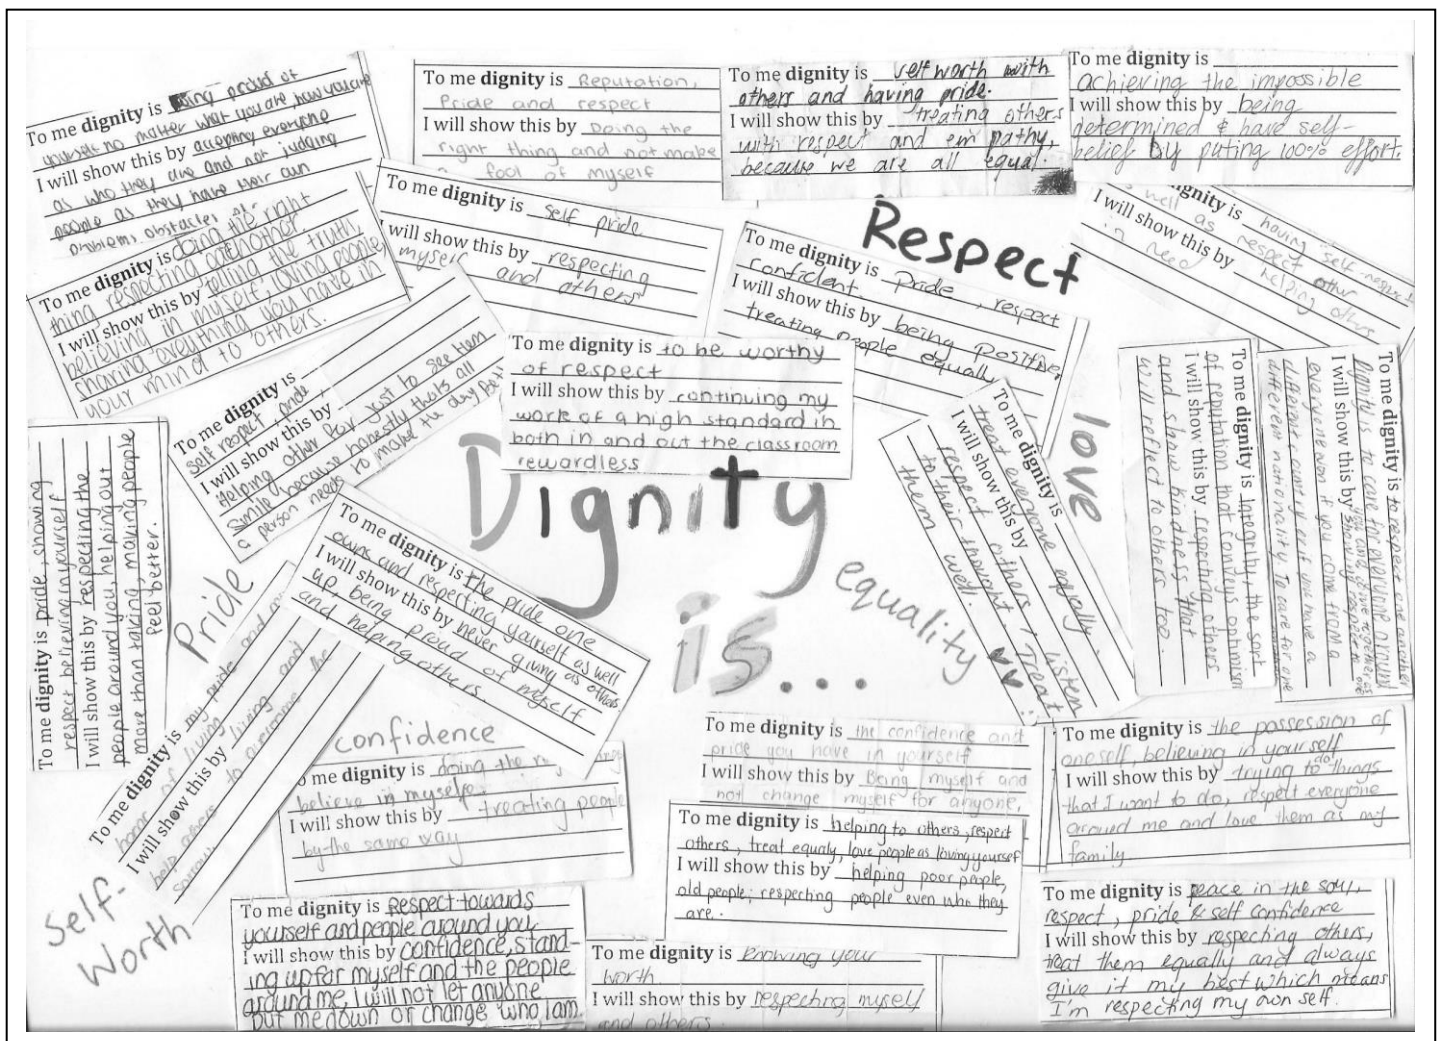 To me dignity is being proud of
yourself no matter what you are how you are
I will show this by accepting everyone
as who they are and not judging
people as they have their own
problems, obstacles or
To me dignity is Reputation,
Pride and respect
I will show this by Doing the
right thing and not make
a fool of myself
To me dignity is self worth with
others and having pride.
I will show this by treating others
with respect and empathy,
because we are all equal.
To me dignity is
achieving the impossible
I will show this by being
determined & have self-
belief by puting 100% effort.
dignity is having self-respect
well as respect other
I will show this by helping others
in need
To me dignity is doing the right
thing respecting one another.
I will show this by telling the truth,
believing in myself, loving people,
sharing everything you have in
your mind to others.
To me dignity is self pride
I will show this by respecting
myself and others
Respect
To me dignity is Pride, respect
confident
I will show this by being positive,
treating people equally
To me dignity is
self respect, pride,
I will show this by
Helping other for just to see them
smile because honestly thats all
a person needs to make the day bett
To me dignity is to be worthy
of respect
I will show this by continuing my
work of a high standard in
both in and out the classroom
rewardless
love
To me dignity is
treat everyone equally.
I will show this by
respect others, listen
to their thought. Treat
them well.
To me dignity is Integrity, the sort
of reputation that conveys optimism
I will show this by respecting others
and show kindness that
will reflect to others too.
To me dignity is to respect one another
Dignity is to care for everyone around
I will show this by
everyone even if you come from a
different country or if you have a
different nationality. To care for one
To me dignity is pride, showing
respect believing in yourself
I will show this by respecting the
people around you, helping out
more than taking, making people
feel better.
Pride
Dignity
is...
equality
To me dignity is the pride one
owns and respecting yourself as well as others
I will show this by never giving
up, being proud of myself
and helping others
To me dignity is my pride and
honor of living
I will show this by living and
help others to overcome the
sorrow
Self-
Worth
confidence
To me dignity is doing the right
believe in myself.
I will show this by treating people
by the same way
To me dignity is the confidence and
pride you have in yourself
I will show this by Being myself and
not change myself for anyone,
To me dignity is the possession of
oneself, believing in yourself
I will show this by trying to do things
that I want to do, respect everyone
around me and love them as my
family.
To me dignity is helping to others, respect
others, treat equaly, love people as loving yourself
I will show this by helping poor people,
old people; respecting people even who they
are.
To me dignity is Respect towards
yourself and people around you
I will show this by confidence, stand-
ing up for myself and the people
around me. I will not let anyone
put me down or change who I am.
To me dignity is knowing your
worth
I will show this by respecting myself
and others.
To me dignity is peace in the soul,
respect, pride & self confidence
I will show this by respecting others,
treat them equally and always
give it my best which means
I'm respecting my own self.